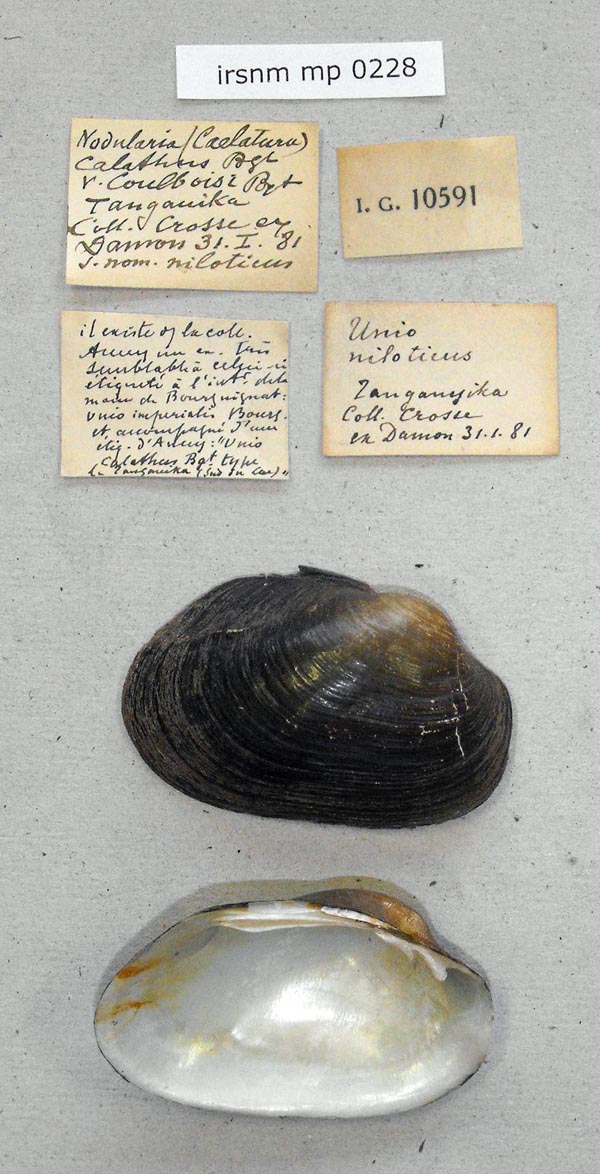 irsnm mp 0228
Nodularia (Caelatura)
Calathus Bgt
v. Coulboisi Bgt
Tanganika
Coll. Crosse ex
Damon 31.I.81
s. nom. niloticus
I. G. 10591
il existe ds la coll.
Ancey un ex. très
semblable à celui-ci
étiqueté à l'int. de la
main de Bourguignat:
Unio imperialis Bourg.
et accompagné d'une
étiq. d'Ancey: "Unio
Calathus Bgt type
L. Tanganika (Sud du Lac)"
Unio
niloticus
Tanganyika
Coll. Crosse
ex Damon 31.1.81